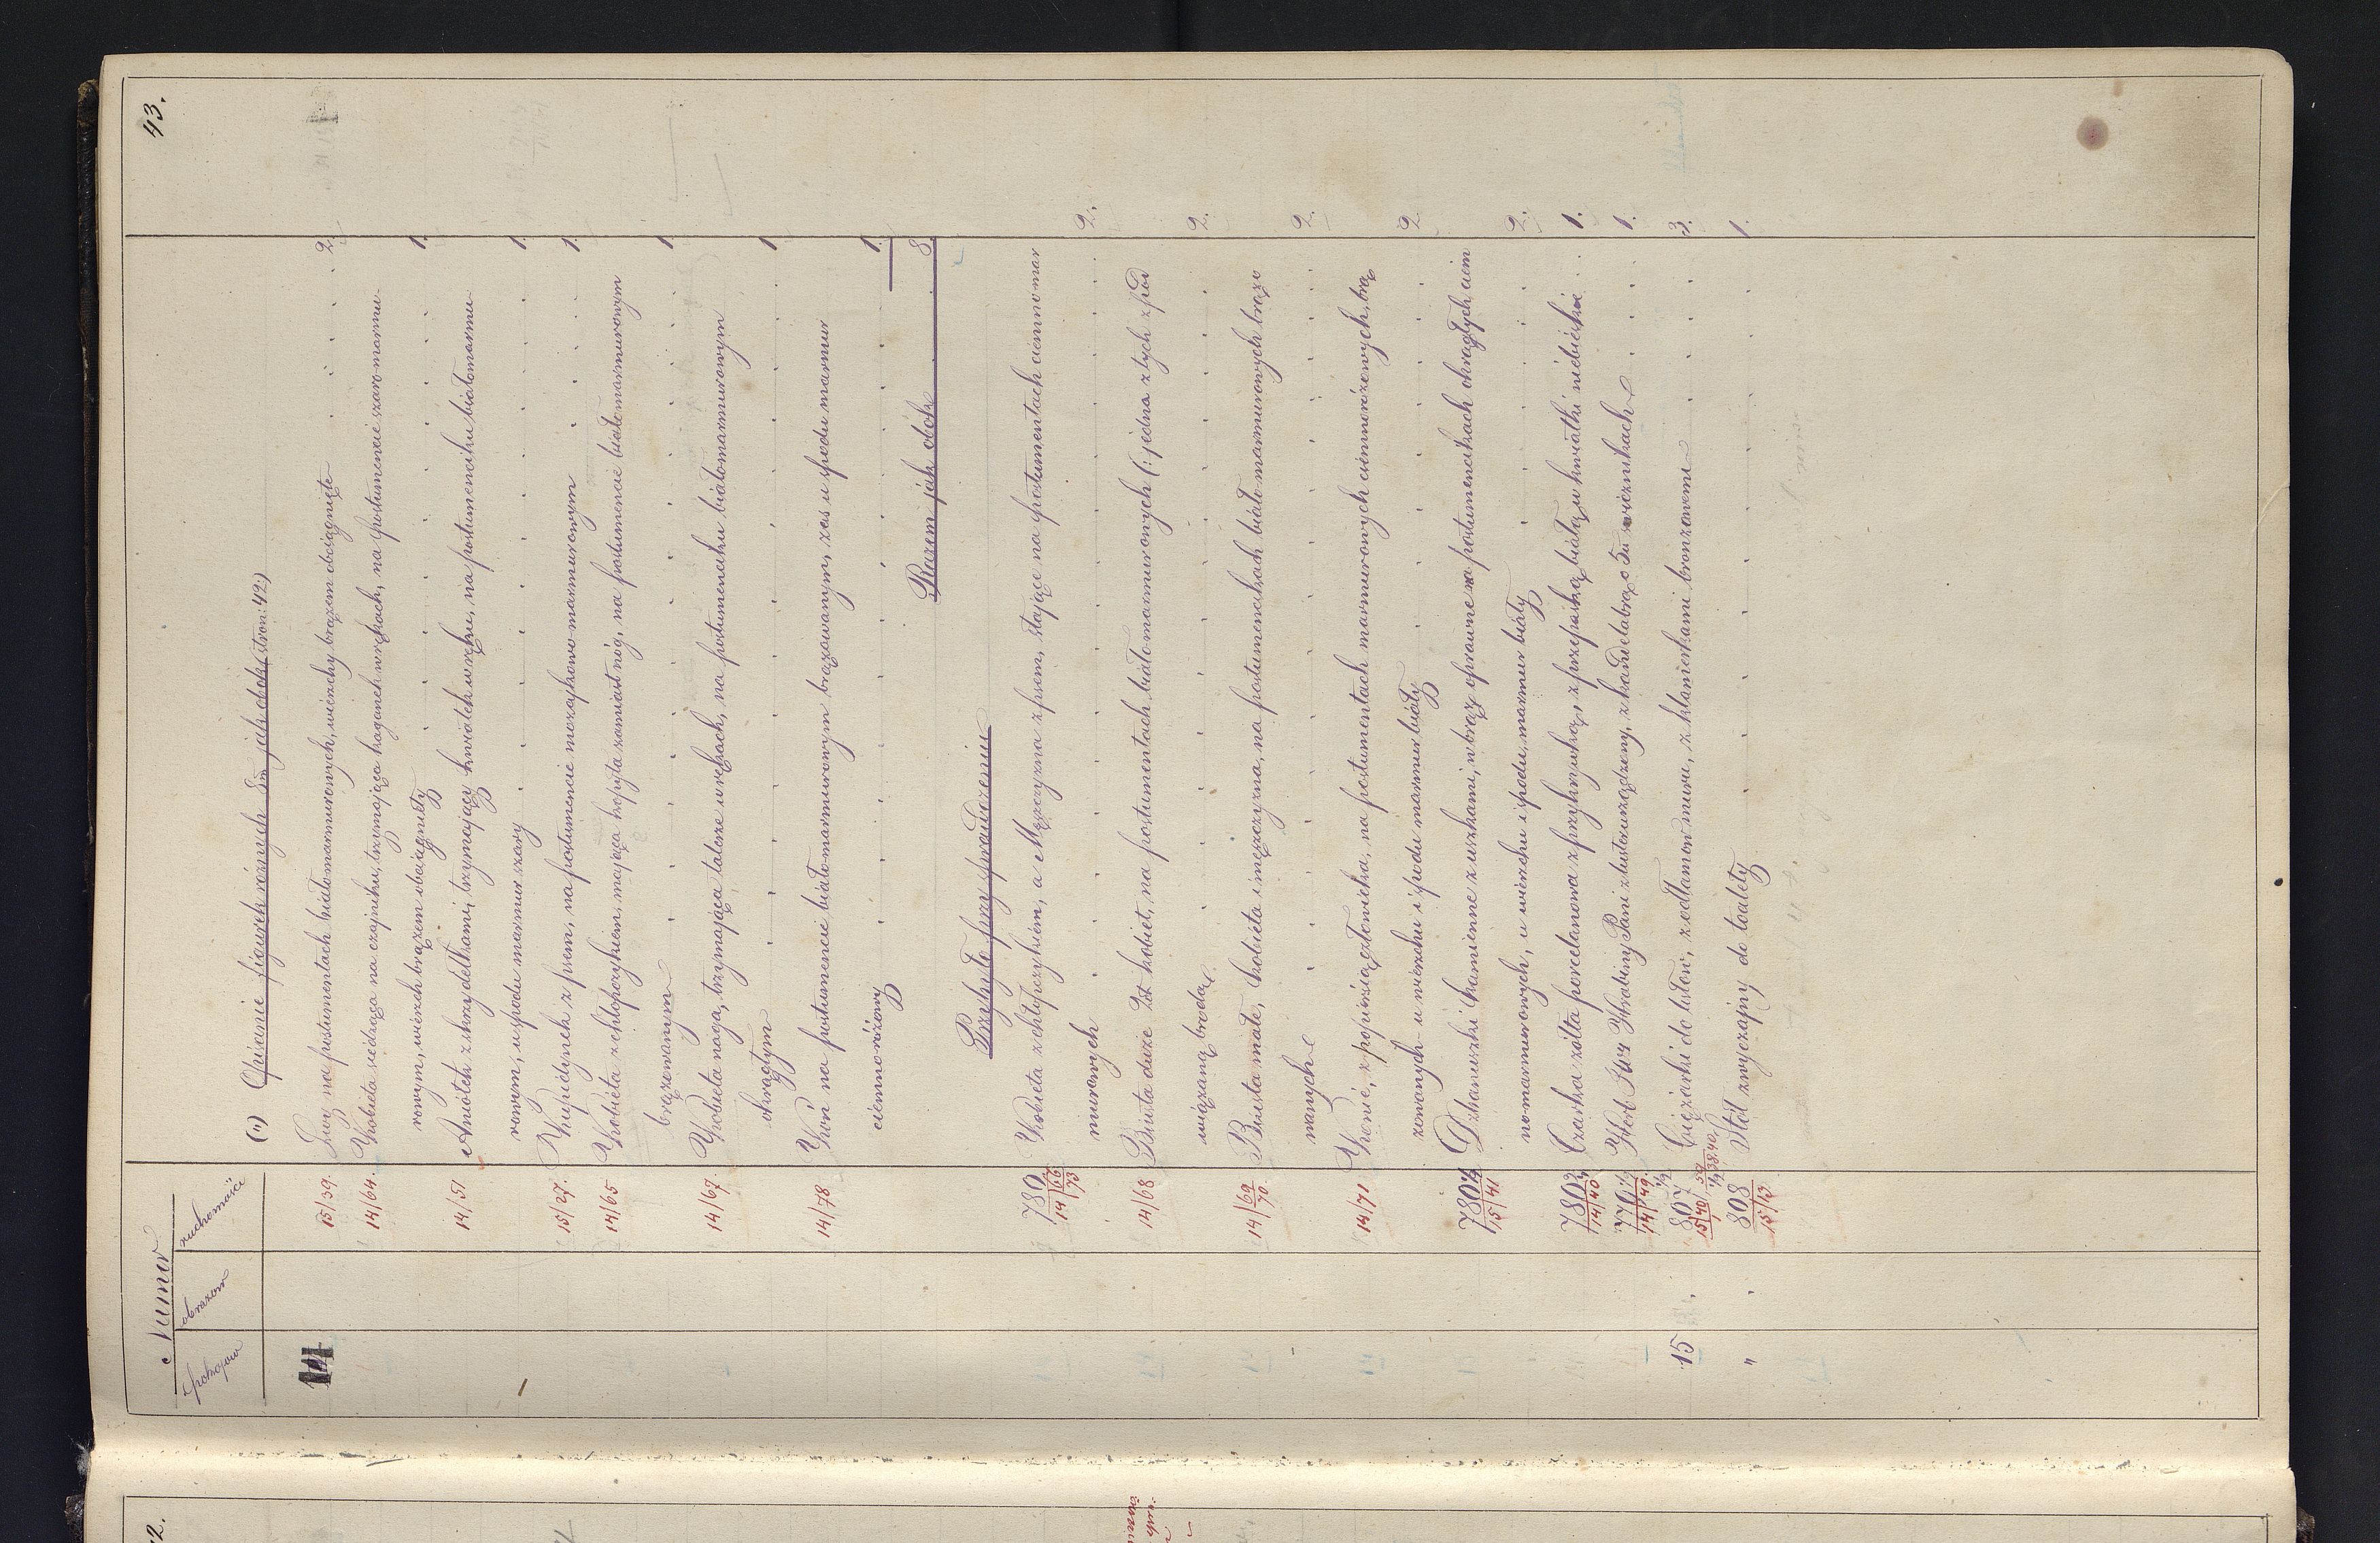 43.
Numer
pokoju obrazów ruchomości
(") Opisanie figurek różnych 8m jak obok (stron: 42:)
14 15/39. Lwy na postumentach białomarmurowych, wierzchy brązem obciągnięte . . . . 2.
14/64. Kobieta siedząca na czajniku, trzymająca kaganek w rękach, na postumencie szaro marmu
rowym, wierzch brązem obciągnięty . . . . . . . 1.
14/51 Aniołek z skrzydełkami, trzymający kwiatek w ręku, na postumenciku białomarmu
rowym, u spodu marmur szary . . . . . . . 1.
15/27. Kupidynek z psem, na postumencie mozajkowo marmurowym . . . . 1.
14/65 Kobieta z chłopczykiem, mająca kopyta zamiast nóg, na postumencie białomarmurowym
brązowanym . . . . . . . . 1.
14/67. Kobieta naga, trzymająca talerze w rękach, na postumenciku białomarmurowym
okrągłym . . . . . . . . 1.
14/78 Koń na postumencie białomarmurowym brązowanym, zaś u spodu marmur
ciemno różowy . . . . . . . . 1.
Razem jak obok . . 8.
Przybyło przy sprawdzeniu
780 14/66 73 Kobieta z chłopczykiem, a Mężczyzna z psem, stojące na postumentach ciemno mar
murowych . . . . . . . . 2.
14/68 Biusta duże 2ch kobiet, na postumentach białomarmurowych (: jedna z tych z pod
wiązaną brodą . . . . . . . . 2.
14/69 70. Biusta małe, kobieta i mężczyzna, na postumencikach białomarmurowych brązo
wanych . . . . . . . . 2.
14/71 Konie, z popiersią człowieka, na postumentach marmurowych ciemnoróżowych, brą
zowanych u wierzchu i spodu marmur biały . . . . . 2
780 15/41 Dzbanuszki kamienne z uszkami, w brąz oprawne na postumencikach okrągłych, ciem
no marmurowych, u wierzchu i spodu, marmur biały . . . . . 2.
780 14/40 Czarka żółta porcelanowa z przykrywką, z przepaską białą w kwiatki niebieskie . . 1.
14/49. Herb Jwy Hrabiny Pani z lustrem urządzony, z kandelabrą o 5u świecznikach . . . 1.
15 807 15/40 Ciężarki do listów, z odłamów muru, z klamerkami bronzowemi . . . . 3.
" 808 15/13 Stół zwyczajny do toalety . . . . . . 1.